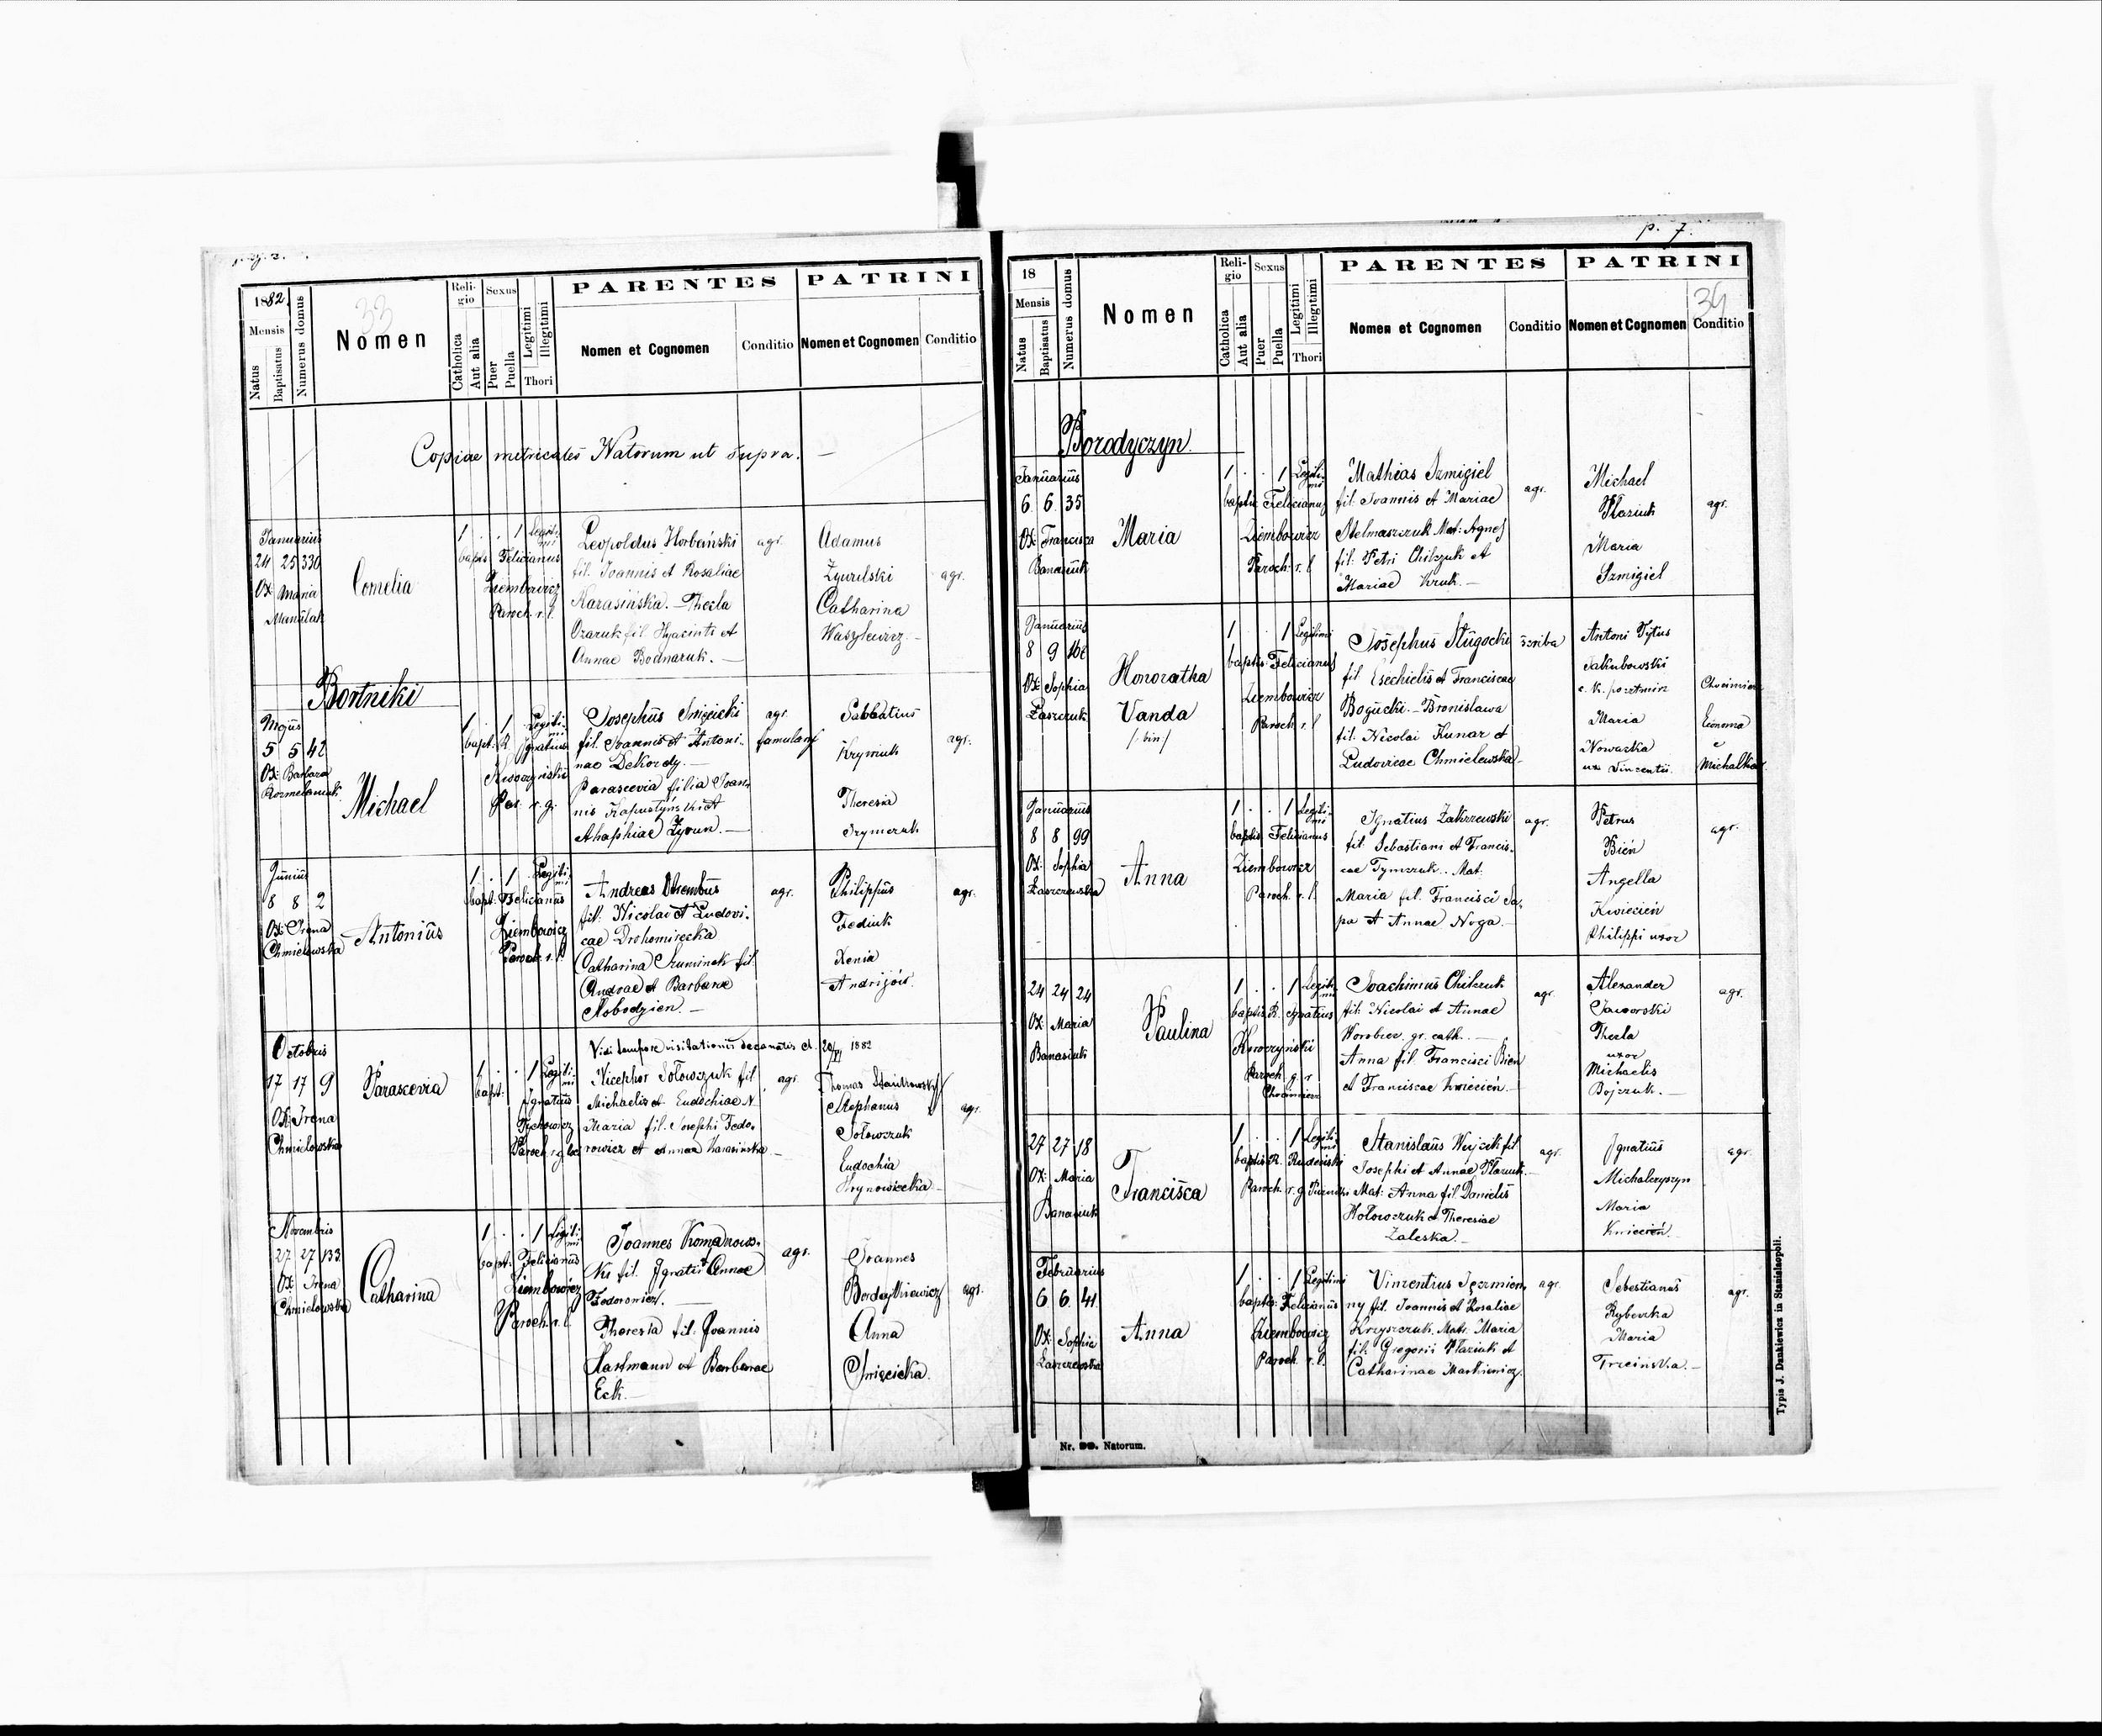 1882
Mensis
Natus
Baptisatus
Numerus domus
Nomen
33
Religio
Catholica
Aut alia
Sexus
Puer
Puella
Legitimi
Illegitimi
Thori
PARENTES
Nomen et Cognomen
Conditio
PATRINI
Nomen et Cognomen
Conditio
Copiae metricales Natorum ut supra. —
Januarius
24 25 330
Ox: Maria
Cornelia
1 . . 1 Legiti-
mi
bapt. Felicianus
Ziembowicz
Paroch. r. l.
Leopoldus Horbański
fil. Joannis et Rosaliae
Karasińska. — Thecla
Ozaruk fil. Hyacinti et
Annae Bodnaruk. —
agr.
Adamus
Catharina
Waszlewicz. —
agr.
Bortniki
Majus
5 5 42
Ox: Barbara
Michael
1 . 1 . Legiti-
mi
bapt. R. Ignatius
Par. r. g.
Josephus Snięcicki
fil. Joannis et Antoni-
nae Dekordy. —
Parascevia filia Joan-
nis Kapustyński et
Ahaphiae Zyrun. —
agr.
famulans
Sabbatius
Krymiuk
Theresia
agr.
Junius
8 8 2
Ox: Irena
Chmielowska
Antonius
1 . 1 . Legiti-
mi
bapt. Felicianus
Ziembowicz
Paroch. r. l.
Andreas
fil. Nicolai et Ludovi-
cae Drohomirecka
Catharina fil.
Andreae et Barbarae
agr.
Philippus
Fediuk
Xenia
Andrijów.
agr.
Octobris
17 17 9
Ox: Irena
Chmielowska
Parascevia
1 . . 1 Legiti-
mi
bapt. Ignatius
Vidi tempore visitationis decanalis d. 20/XI 1882
Nicephor Sołowczuk fil
Michaelis et Eudochiae N.
Maria fil. Josephi Fedo-
rowicz et Annae Karasińska —
agr.
Thomas
Stephanus
Sołowczuk
Eudochia
Hrynowiecka —
agr.
Novembris
27 27 133
Ox: Irena
Chmielowska
Catharina
1 . . 1 Legiti-
mi
bapt. Felicianus
Ziembowicz
Paroch. r. l.
Joannes Romanows-
ki fil. Ignatii et Annae
Fedorowicz. —
Theresia fil. Joannis
Hartmann et Barbarae
Eck. —
agr.
Joannes
Anna
Snięcicka.
agr.
p. 7.
18
Mensis
Natus
Baptisatus
Numerus domus
Nomen
Religio
Catholica
Aut alia
Sexus
Puer
Puella
Legitimi
Illegitimi
Thori
PARENTES
Nomen et Cognomen
Conditio
PATRINI
Nomen et Cognomen
Conditio
34
Borodyczyn
Januarius
6 6 35
Ox: Francisca
Banasiuk
Maria
1 . . 1 Legiti-
mi
baptis. Felicianus
Ziembowicz
Paroch. r. l
Mathias Szmigiel
fil. Joannis et Mariae
Stelmaszczuk Mat: Agnes
fil. Petri Chilczuk et
Mariae Kruk. —
agr.
Michael
Płaziuk
Maria
Szmigiel
agr.
Januarius
8 9
Ox: Sophia
Honoratha
Vanda
/. bin /
1 . . 1 Legitimi
baptis. Felicianus
Ziembowicz
Paroch. r. l
Josephus Długocki
fil. Esechielis et Franciscae
Bogucki. — Bronislawa
fil. Nicolai Kunar et
Ludovicae Chmielewska —
scriba
Antoni Tytus
Jakubowski
c. k.
Maria
Nowacka
ux Vincentii
Michalków
Januarius
8 8 99
Ox: Sophia
Anna
1 . . 1 Legiti-
mi
baptis. Felicianus
Ziembowicz
Paroch. r. l.
Ignatius Zakrzewski
fil. Sebastiani et Francis-
cae Tymczuk. Mat.
Maria fil. Francisci Sa-
pa et Annae Noga. —
agr.
Petrus
Bień
Angella
Kwiecień
Philippi uxor
agr.
24 24 24
Ox: Maria
Banasiuk
Paulina
1 . . 1 Legiti-
mi
baptis. R. Ignatius
Paroch. g. r
Joachimus Chilczuk
fil. Nicolai et Annae
Worobiec gr. cath. —
Anna fil. Francisci Bień
et Franciscae Kwiecień —
agr.
Alexander
Jaworski
Thecla
uxor
Michaelis
Bojczuk. —
agr.
27 27 18
Ox: Maria
Banasiuk
Francisca
1 . . 1 Legiti-
mi
baptis. R.
Paroch. r. g.
Stanislaus Wujcik fil
Josephi et Annae Płaziuk. —
Mat: Anna fil Danielis
Hołowczuk et Theresiae
Zaleska. —
agr.
Ignatius
Michalczyszyn
Maria
Kwiecień.
agr.
Februarius
6 6 41
Ox: Sophie
Anna
1 . . 1 Legitimi
baptis: Felicianus
Ziembowicz
Paroch. r. l.
Vincentius Jęczmien-
ny fil. Joannis et Rosaliae
Krzyszczuk. Mat. Maria
fil. Gregorii Płaziuk et
Catharinae Markiewicz.
agr.
Sebestianus
Rybevka
Maria
Trzcińska. —
agr.
Natorum.
Typis J. Dankiewicz in Stanislaopoli.